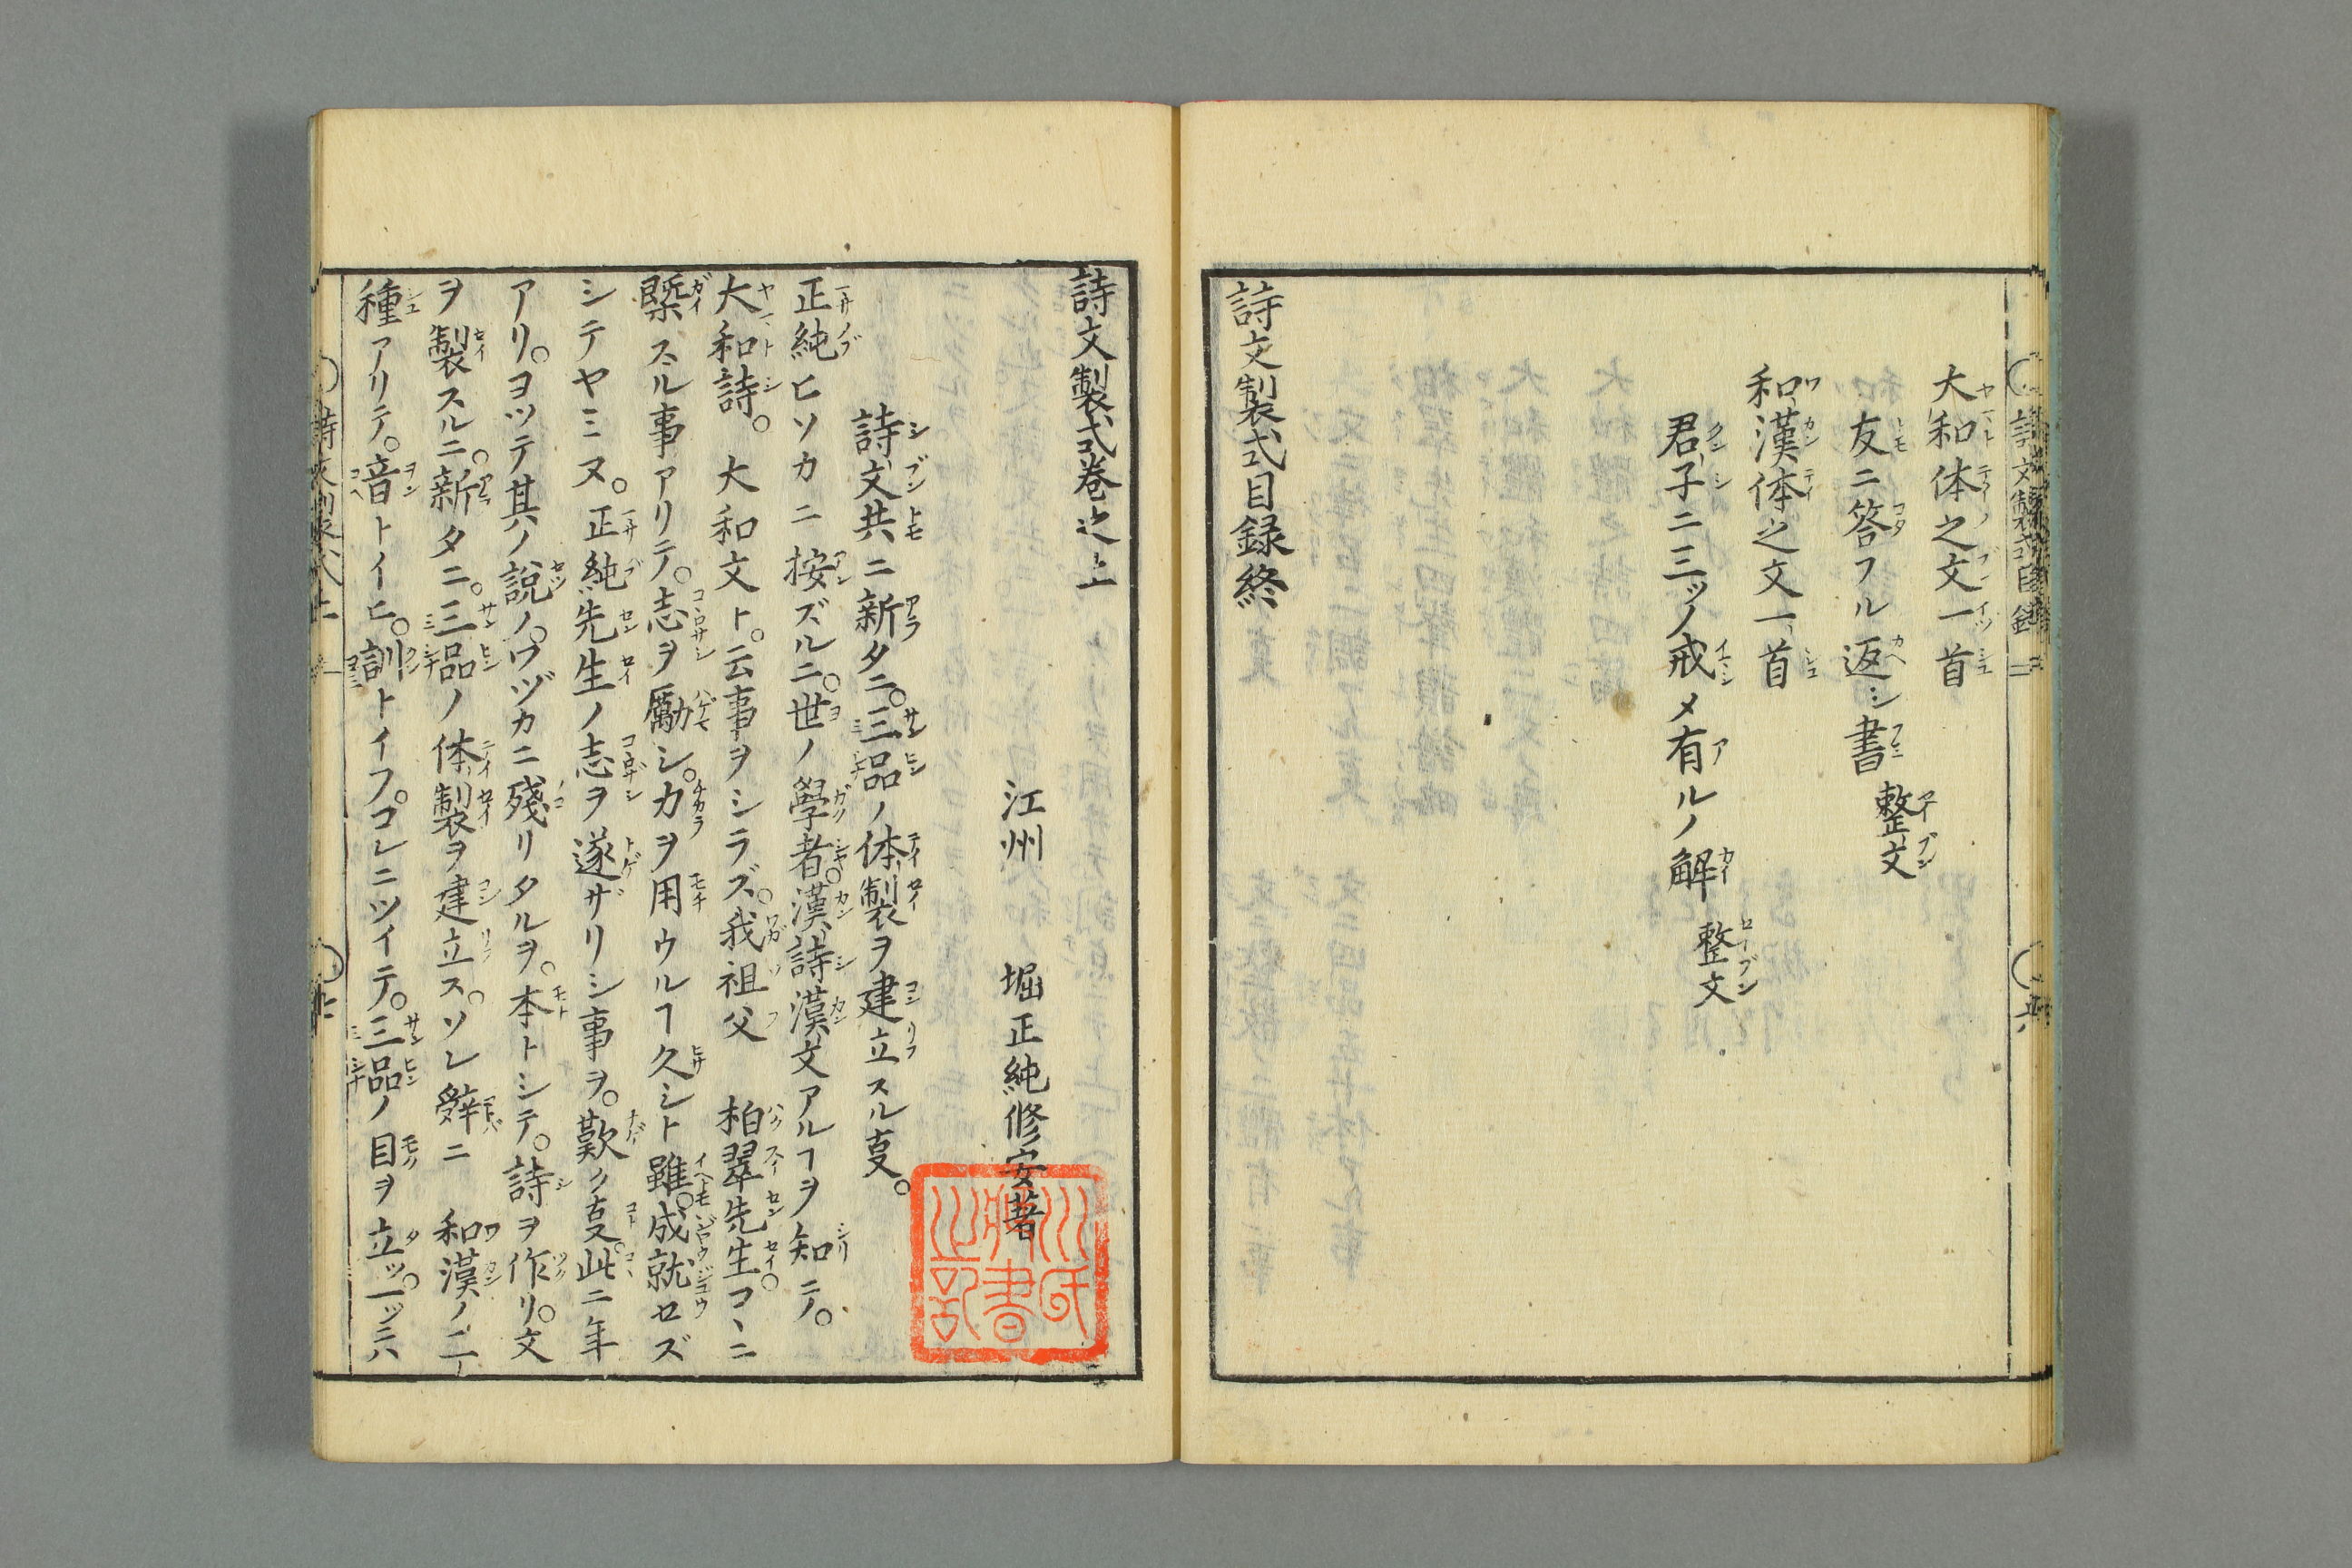 大和体之文一首
友ニ答フル返シ書 整文
和漢体之文一首
君子ニ三ツノ戒メ有ルノ解 整文
詩文製式目録終
詩文製式卷之上
江州 堀正純修安著
詩文共ニ新タニ。三品ノ体製ヲ建立スル㕝。
正純ヒソカニ按ズルニ。世ノ學者。漢詩漢文アルヿヲ知ニテ。
大和詩。大和文ト。云事ヲシラズ。我祖父 柏翠先生コヽニ
槩スル事アリテ。志ヲ勵シ。力ヲ用ウルヿ久シト雖。成就セズ
シテヤミヌ。正純先生ノ志ヲ遂ザリシ事ヲ。歎ク㕝。此ニ年
アリ。ヨツテ其ノ説ノ。ワヅカニ殘リタルヲ。本トシテ。詩ヲ作リ。文
ヲ製スルニ。新タニ。三品ノ体製ヲ建立ス。ソレ辤ニ 和漢ノ二
種アリテ。音トイヒ。訓トイフ。コレニツイテ。三品ノ目ヲ立ツ。一ツニハ